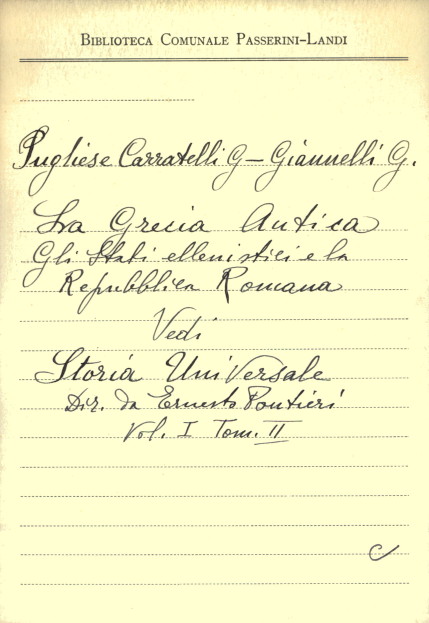 BIBLIOTECA COMUNALE PASSERINI-LANDI
Pugliese Carratelli G - Giannelli G.
La Grecia Antica
Gli Stati ellenistici e la
Repubblica Romana
Vedi
Storia Universale
Dir. da Ernesto Pontieri
Vol. I Tom. II
C